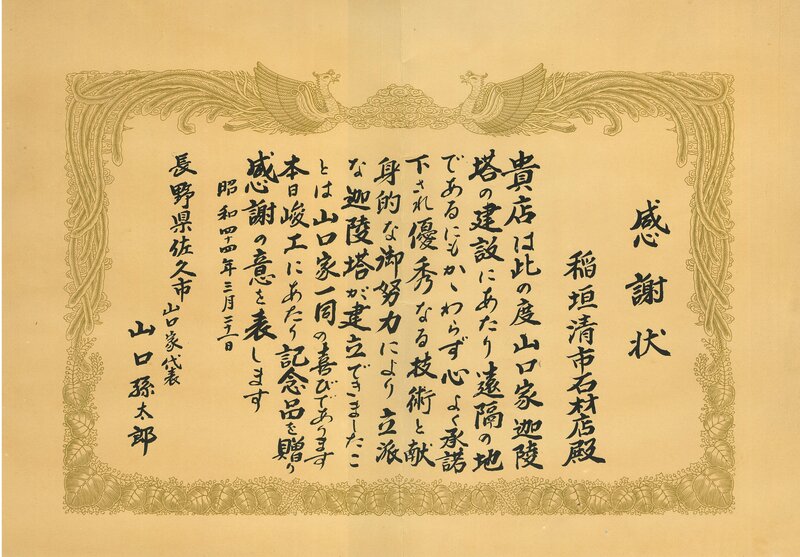 感謝状
稲垣清市石材店殿
貴店は此の度山口家迦陵
塔の建設にあたり遠隔の地
であるにもかゝわらず心よく承諾
下され優秀なる技術と献
身的な御努力により立派
な迦陵塔が建立できましたこ
とは山口家一同の喜びであります
本日峻工にあたり記念品を贈り
感謝の意を表します
昭和四十四年三月二十一日
長野県佐久市
山口家代表
山口孫太郎